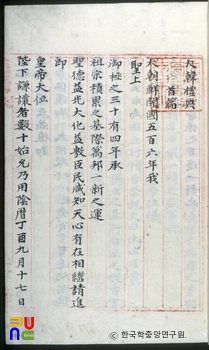 大韓禮典
首篇
大朝鮮開國五百六年我
聖上
御極之三十有四年承
祖宗積累之基際萬邦一新之運
聖德益光大化益敷臣民咸知天心有在相繼請進
即
皇帝大位
陛下謙讓者數十始允乃用陰曆丁酉九月十七日
한국학중앙연구원